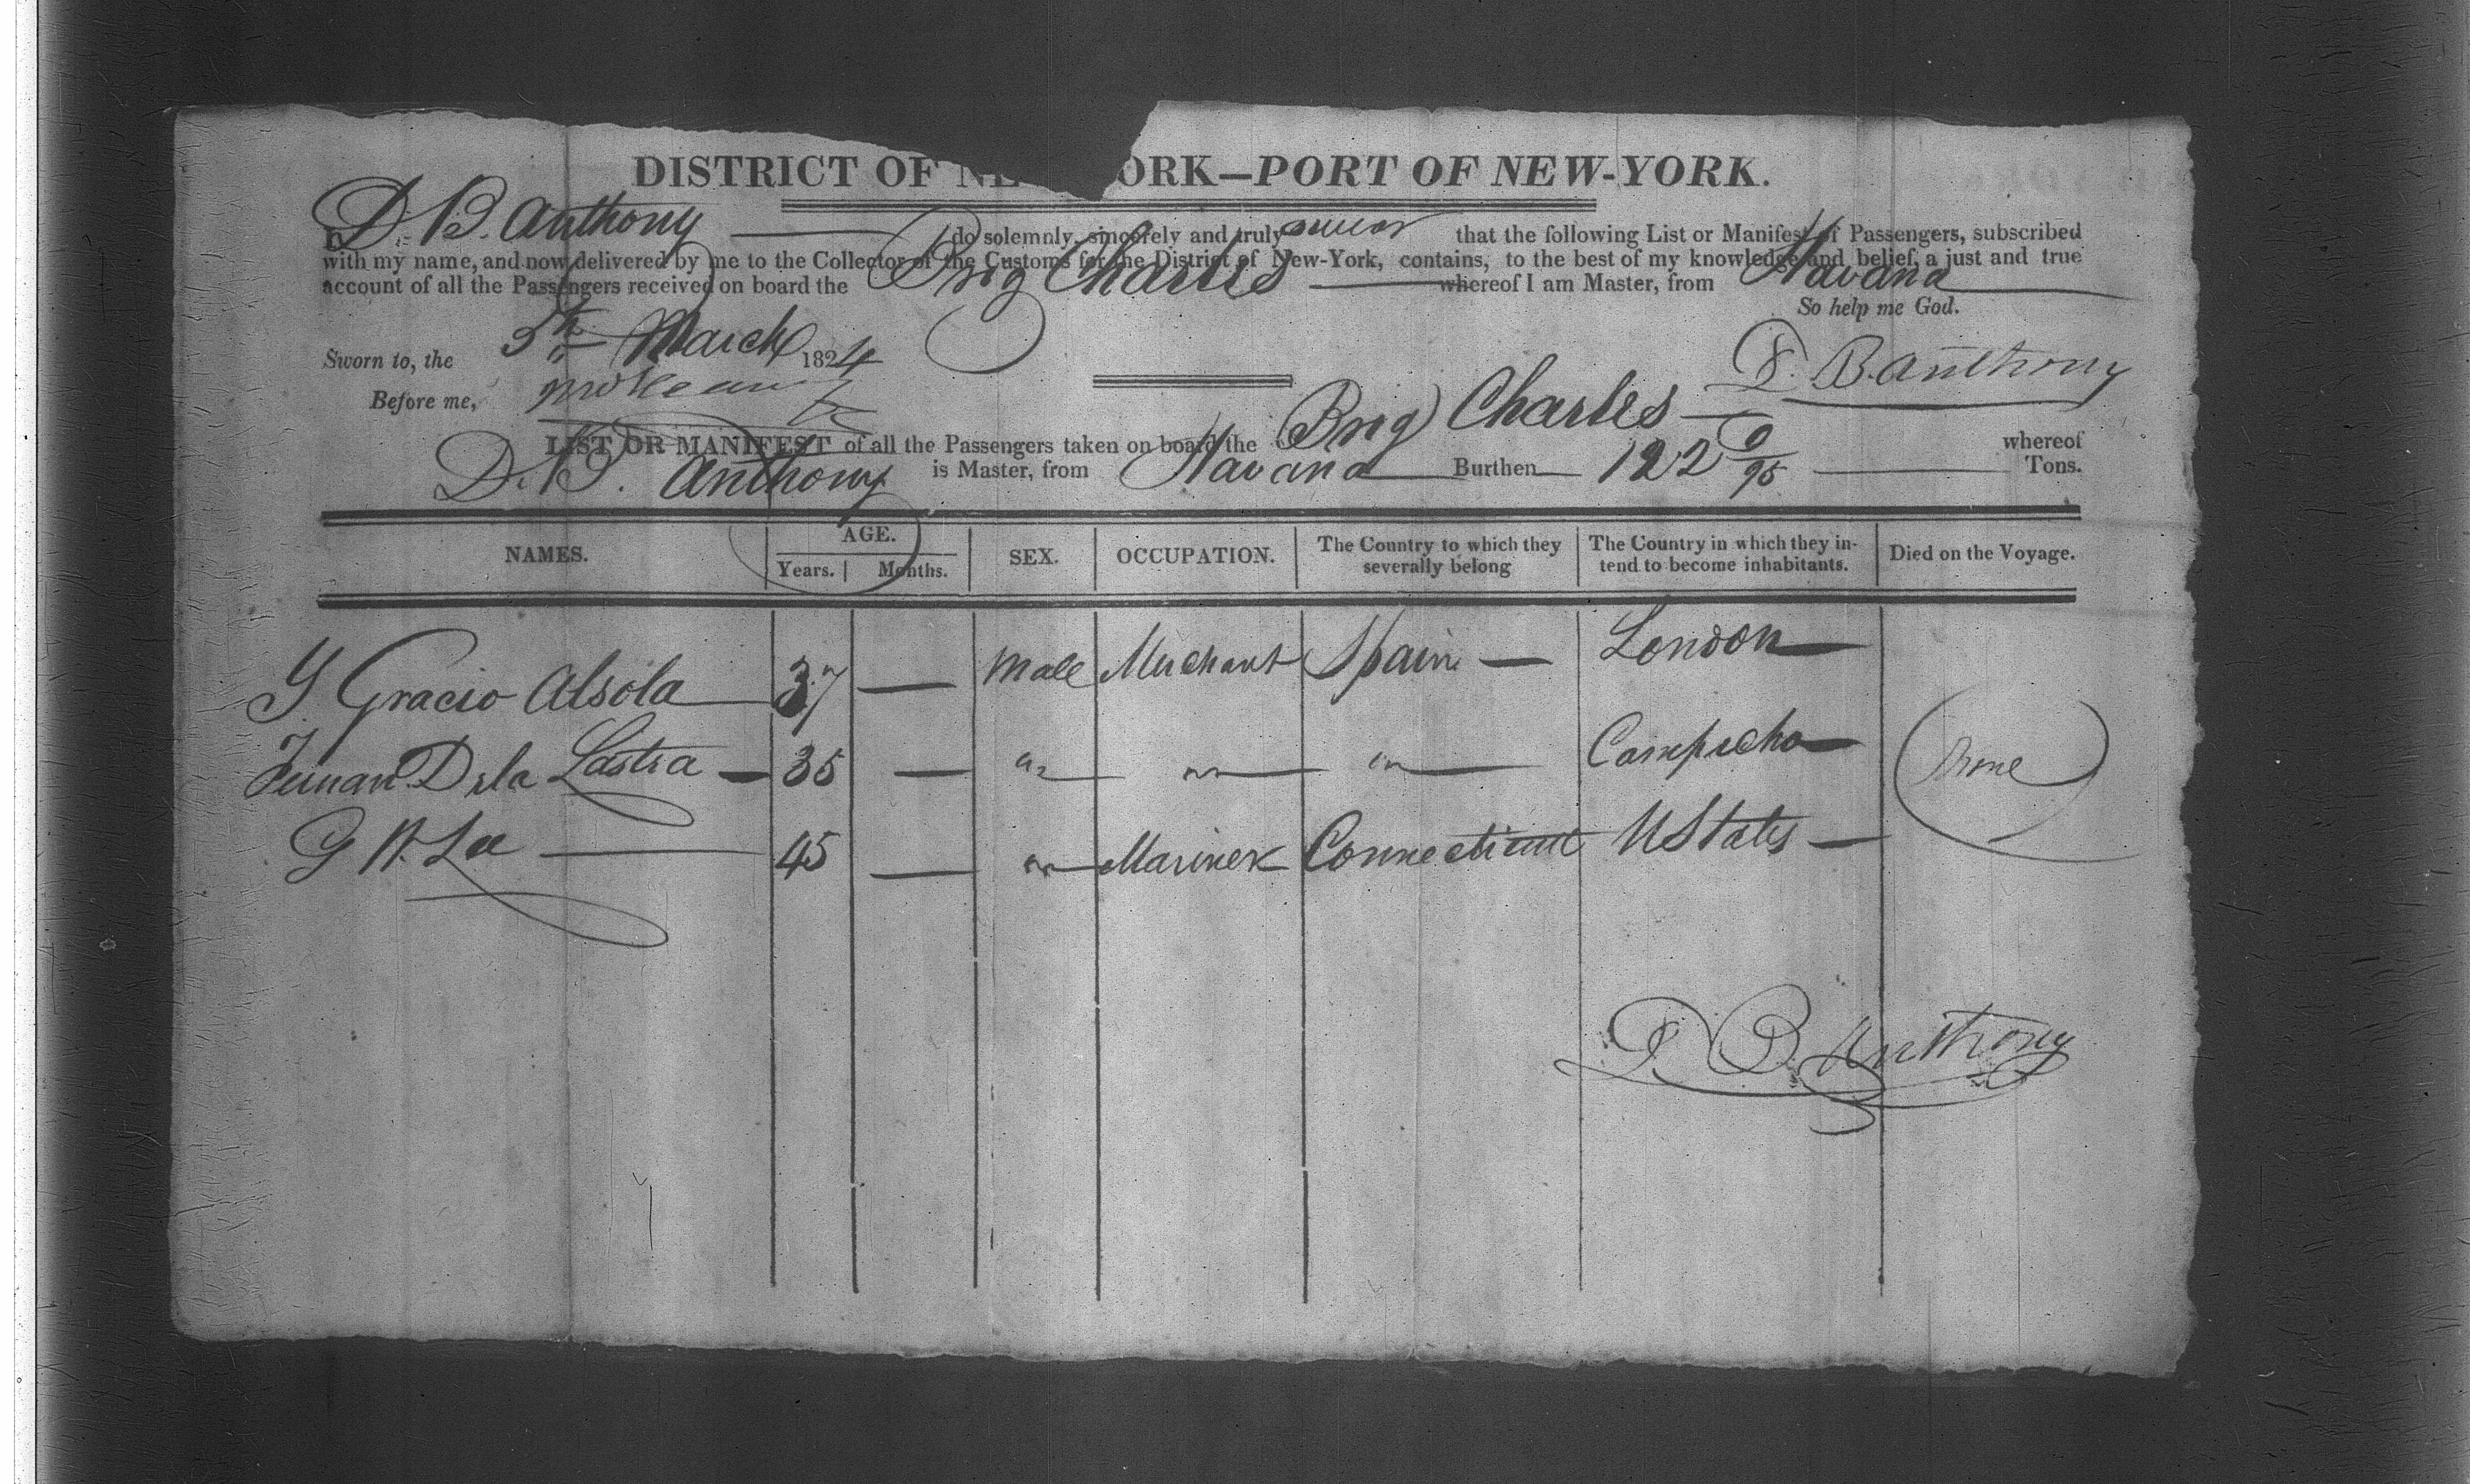 DISTRICT OF NE ORK—PORT OF NEW-YORK.
I, D. B. Anthony do solemnly, sincerely and truly swear that the following List or Manifest of Passengers, subscribed
with my name, and now delivered by me to the Collector of the Customs for the District of New-York, contains, to the best of my knowledge and belief, a just and true
account of all the Passengers received on board the Brig Charles whereof I am Master, from Havana
So help me God.
Sworn to, the 5th March 1824
D. B. Anthony
Before me,
LIST OR MANIFEST of all the Passengers taken on board the Brig Charles whereof
D. B. Anthony is Master, from Havana Burthen 122 0/95 Tons.
NAMES. AGE. Years. Months. SEX. OCCUPATION. The Country to which they severally belong The Country in which they intend to become inhabitants. Died on the Voyage.
Y Gracio Alsola 37 — Male Merchant Spain — London —
Fernan Dela Lastra — 35 — " " " Campecha — None
G W. Lee — 45 — " Mariner Connecticut U States —
D B. Anthony